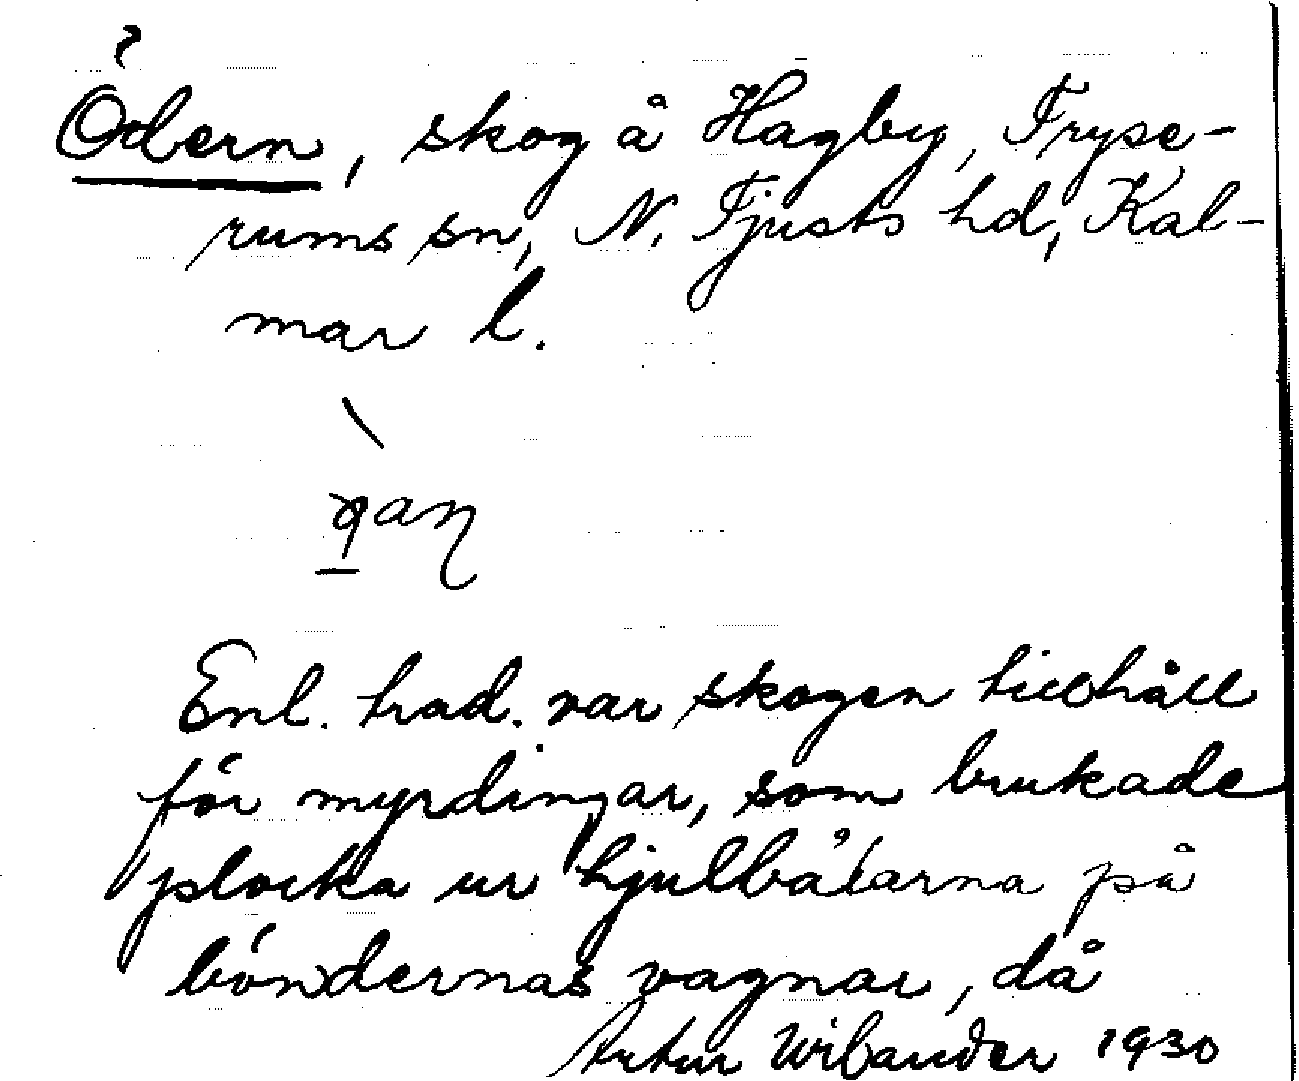 Ödern, skog å Hagby, Fryse-
rums sn, N. Tjusts hd, Kal-
mar l.
Enl. trad. var skogen tillhåll
för myrdingar, som brukade
plocka ur hjulbåtarna på
böndernas vagnar, då
Artur Wilander 1930